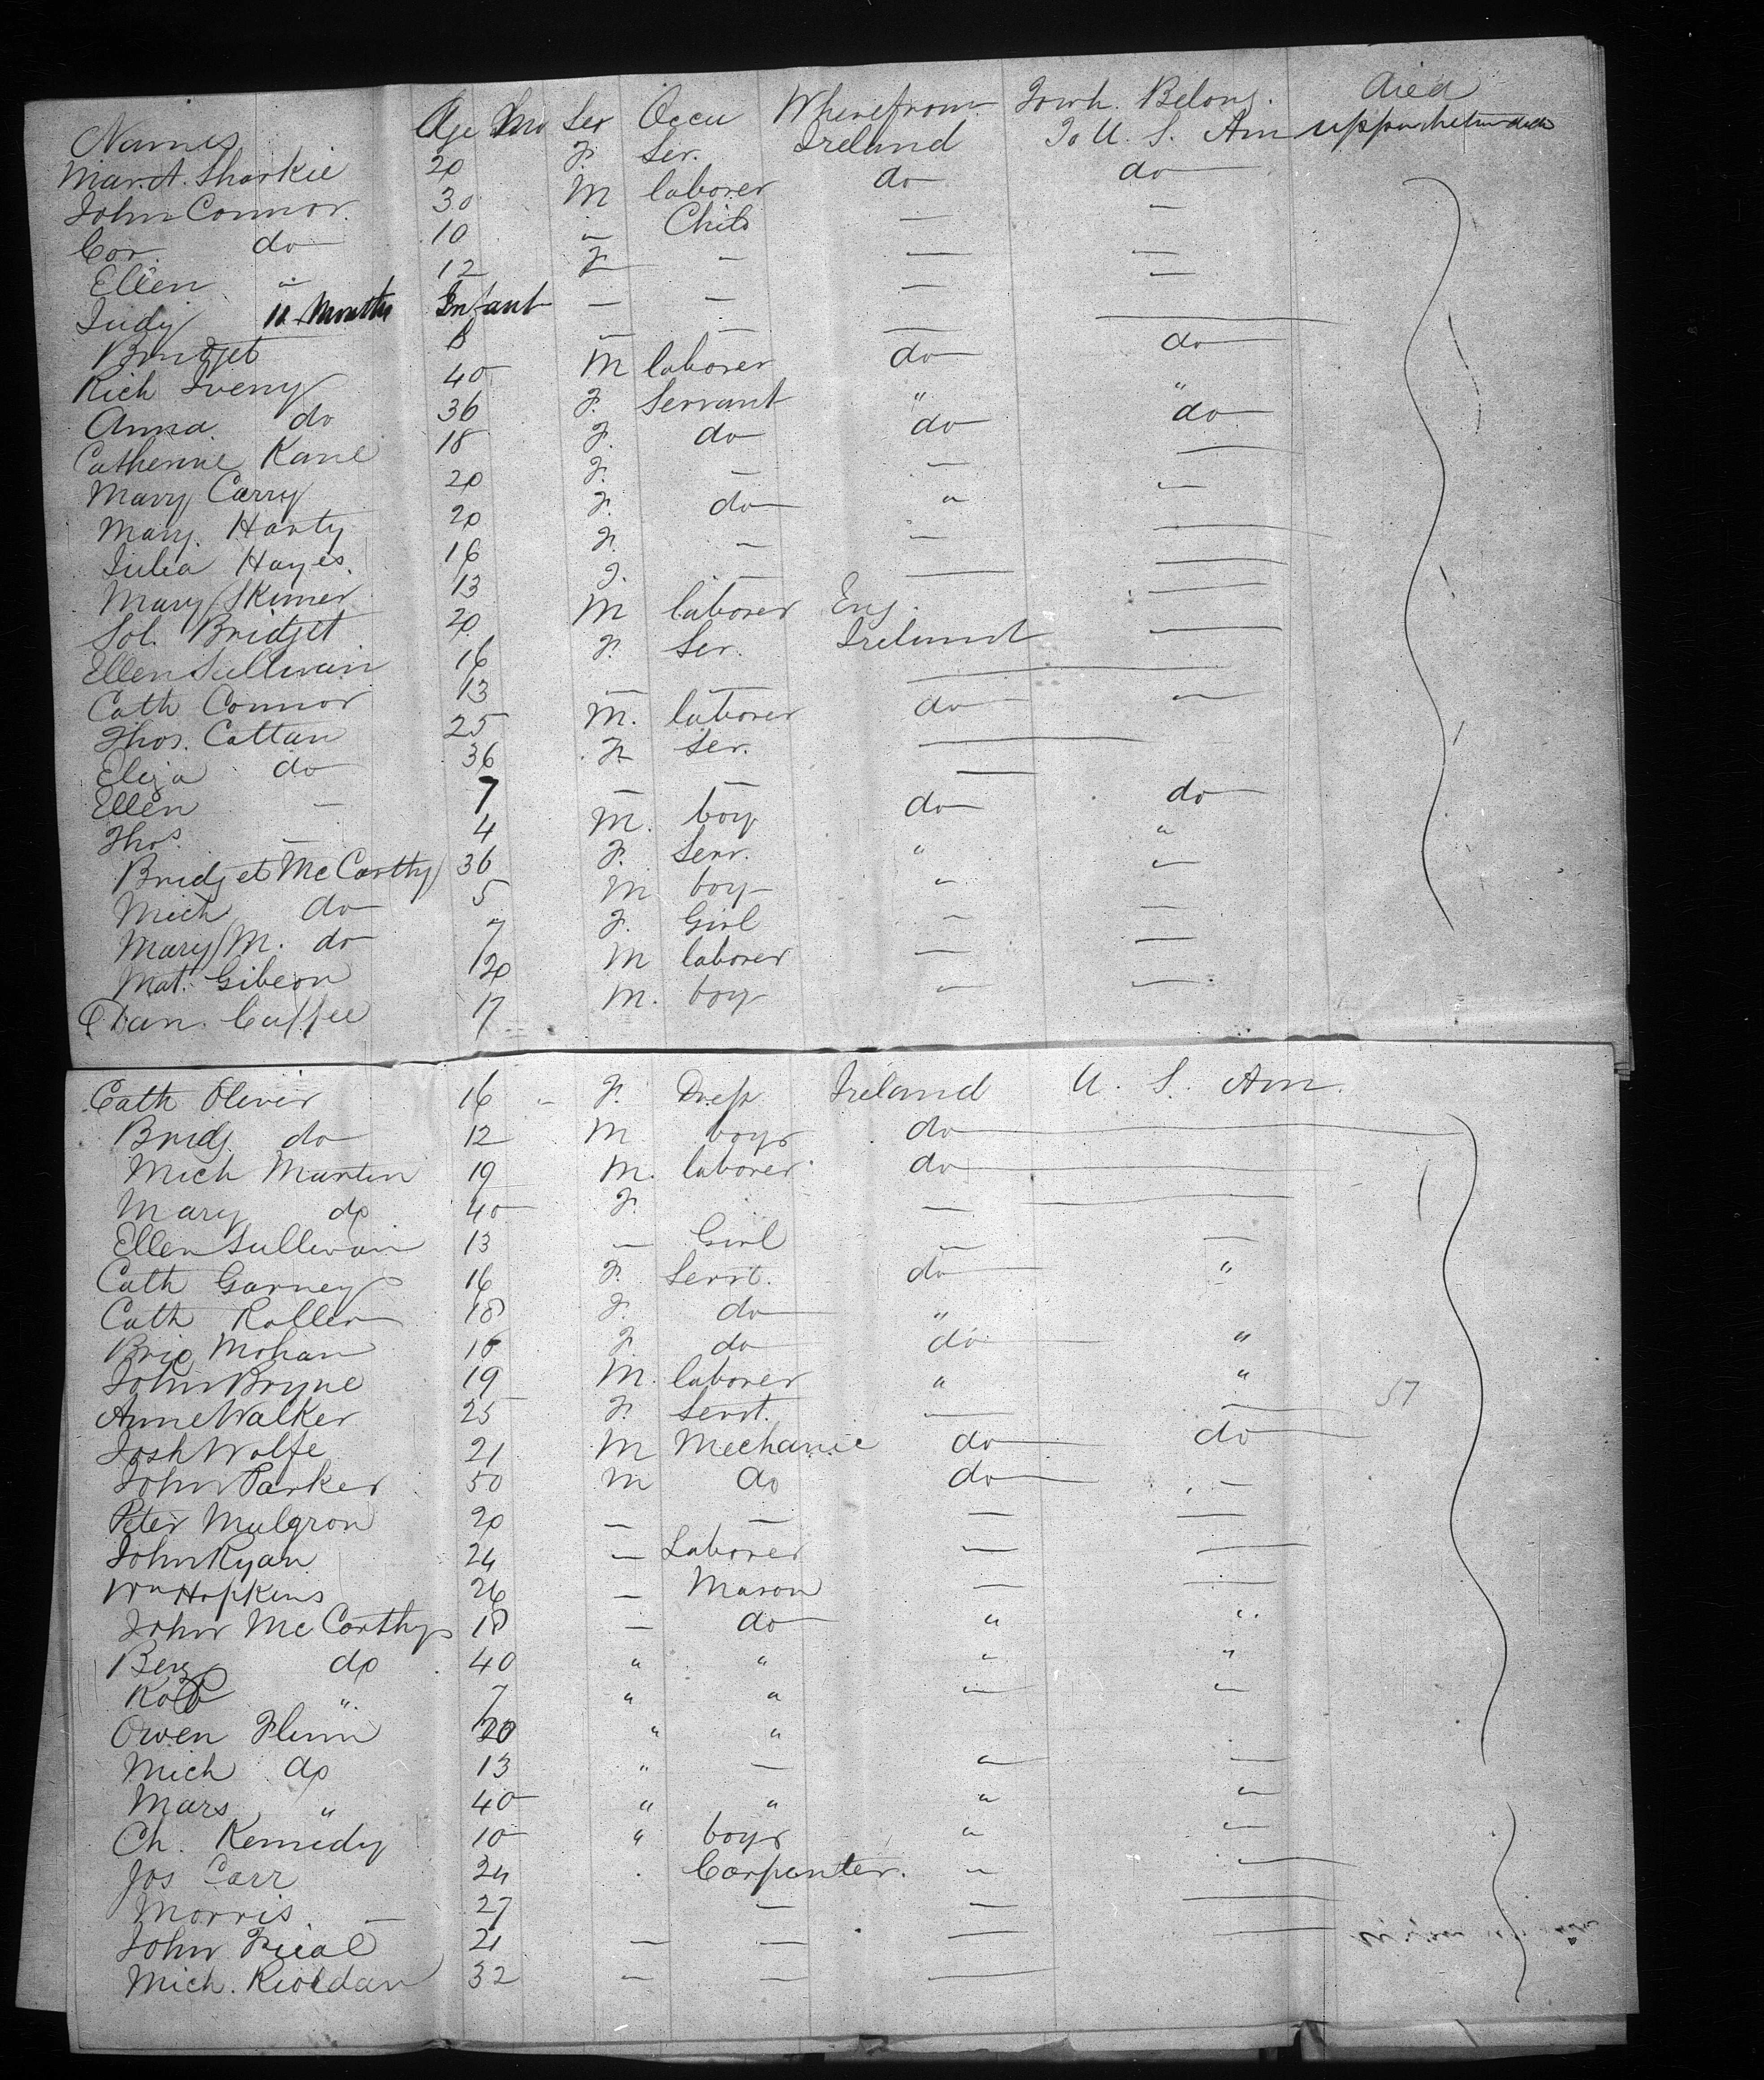 Names Age Mo Sex Occu Wherefrom Towh. Belong. Died
Mar. A. Sharkie 20 F. Ser. Ireland To U. S. Am
John Connor. 30 M laborer do do
Cor. do 10 " Child — —
Ellen " 12 F — — —
Judy 11 Months Infant — — — —
Bridget 8 — — — —
Rich Iveny 40 M laborer do do
Anna do 36 F. Servant " "
Catherine Kane 18 F. do do do
Mary Carry 20 F. — — —
Mary Harty 20 F. do " —
Julia Hayes. 16 F. — — —
Mary Skinner 13 F. — — —
Sol. Bridget 20 M laborer Eng. —
Ellen Sullivan 16 F. Ser. Ireland —
Cath Connor 13 — — —
Thos. Cattan 25 M. laborer do —
Eliza do 36 F Ser. —
Ellen — 7 — — —
Thos. — 4 M. boy do do
Bridget McCarthy 36 F. Serv. " "
Mich do 5 M boy " —
Mary M. do 7 F. Girl — —
Mat. Gibeon 20 M laborer — —
Dan. Caffee 17 M. boy — —
Cath Oliver 16 F. Dress Ireland U. S. Am.
Bridg do 12 M boy do —
Mich Martin 19 M. laborer do —
Mary do 40 F. — —
Ellen Sullivan 13 — Girl — —
Cath Garney 16 F. Servt. do "
Cath Rollen 18 F. do "
Brig Mohan 18 F. do do "
John Bryne 19 M. laborer " "
Anne Walker 25 F. Servt. — — 57
Josh Wolfe 21 M Mechanic do do
John Parker 50 M do do —
Peter Mulgron 20 — — — —
John Ryan 24 — Laborer — —
Wm Hopkins 26 — Mason — —
John McCarthy 18 — do " "
Ben do 40 " " " "
Rob " 7 " " — —
Owen Flinn 20 " "
Mich do 13 " — " —
Mars " 40 " " " "
Ch. Kennedy 10 " boy " —
Jos Carr 24 Carpenter. " —
Morris — 27 — — —
John Fical 21 — — — —
Mich. Riordan 32 — — —